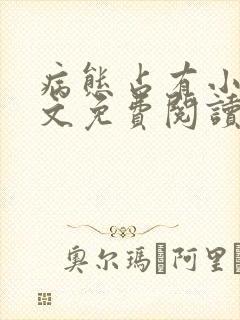 病態占有小
文免費閱讀
奥尔瑪 阿里